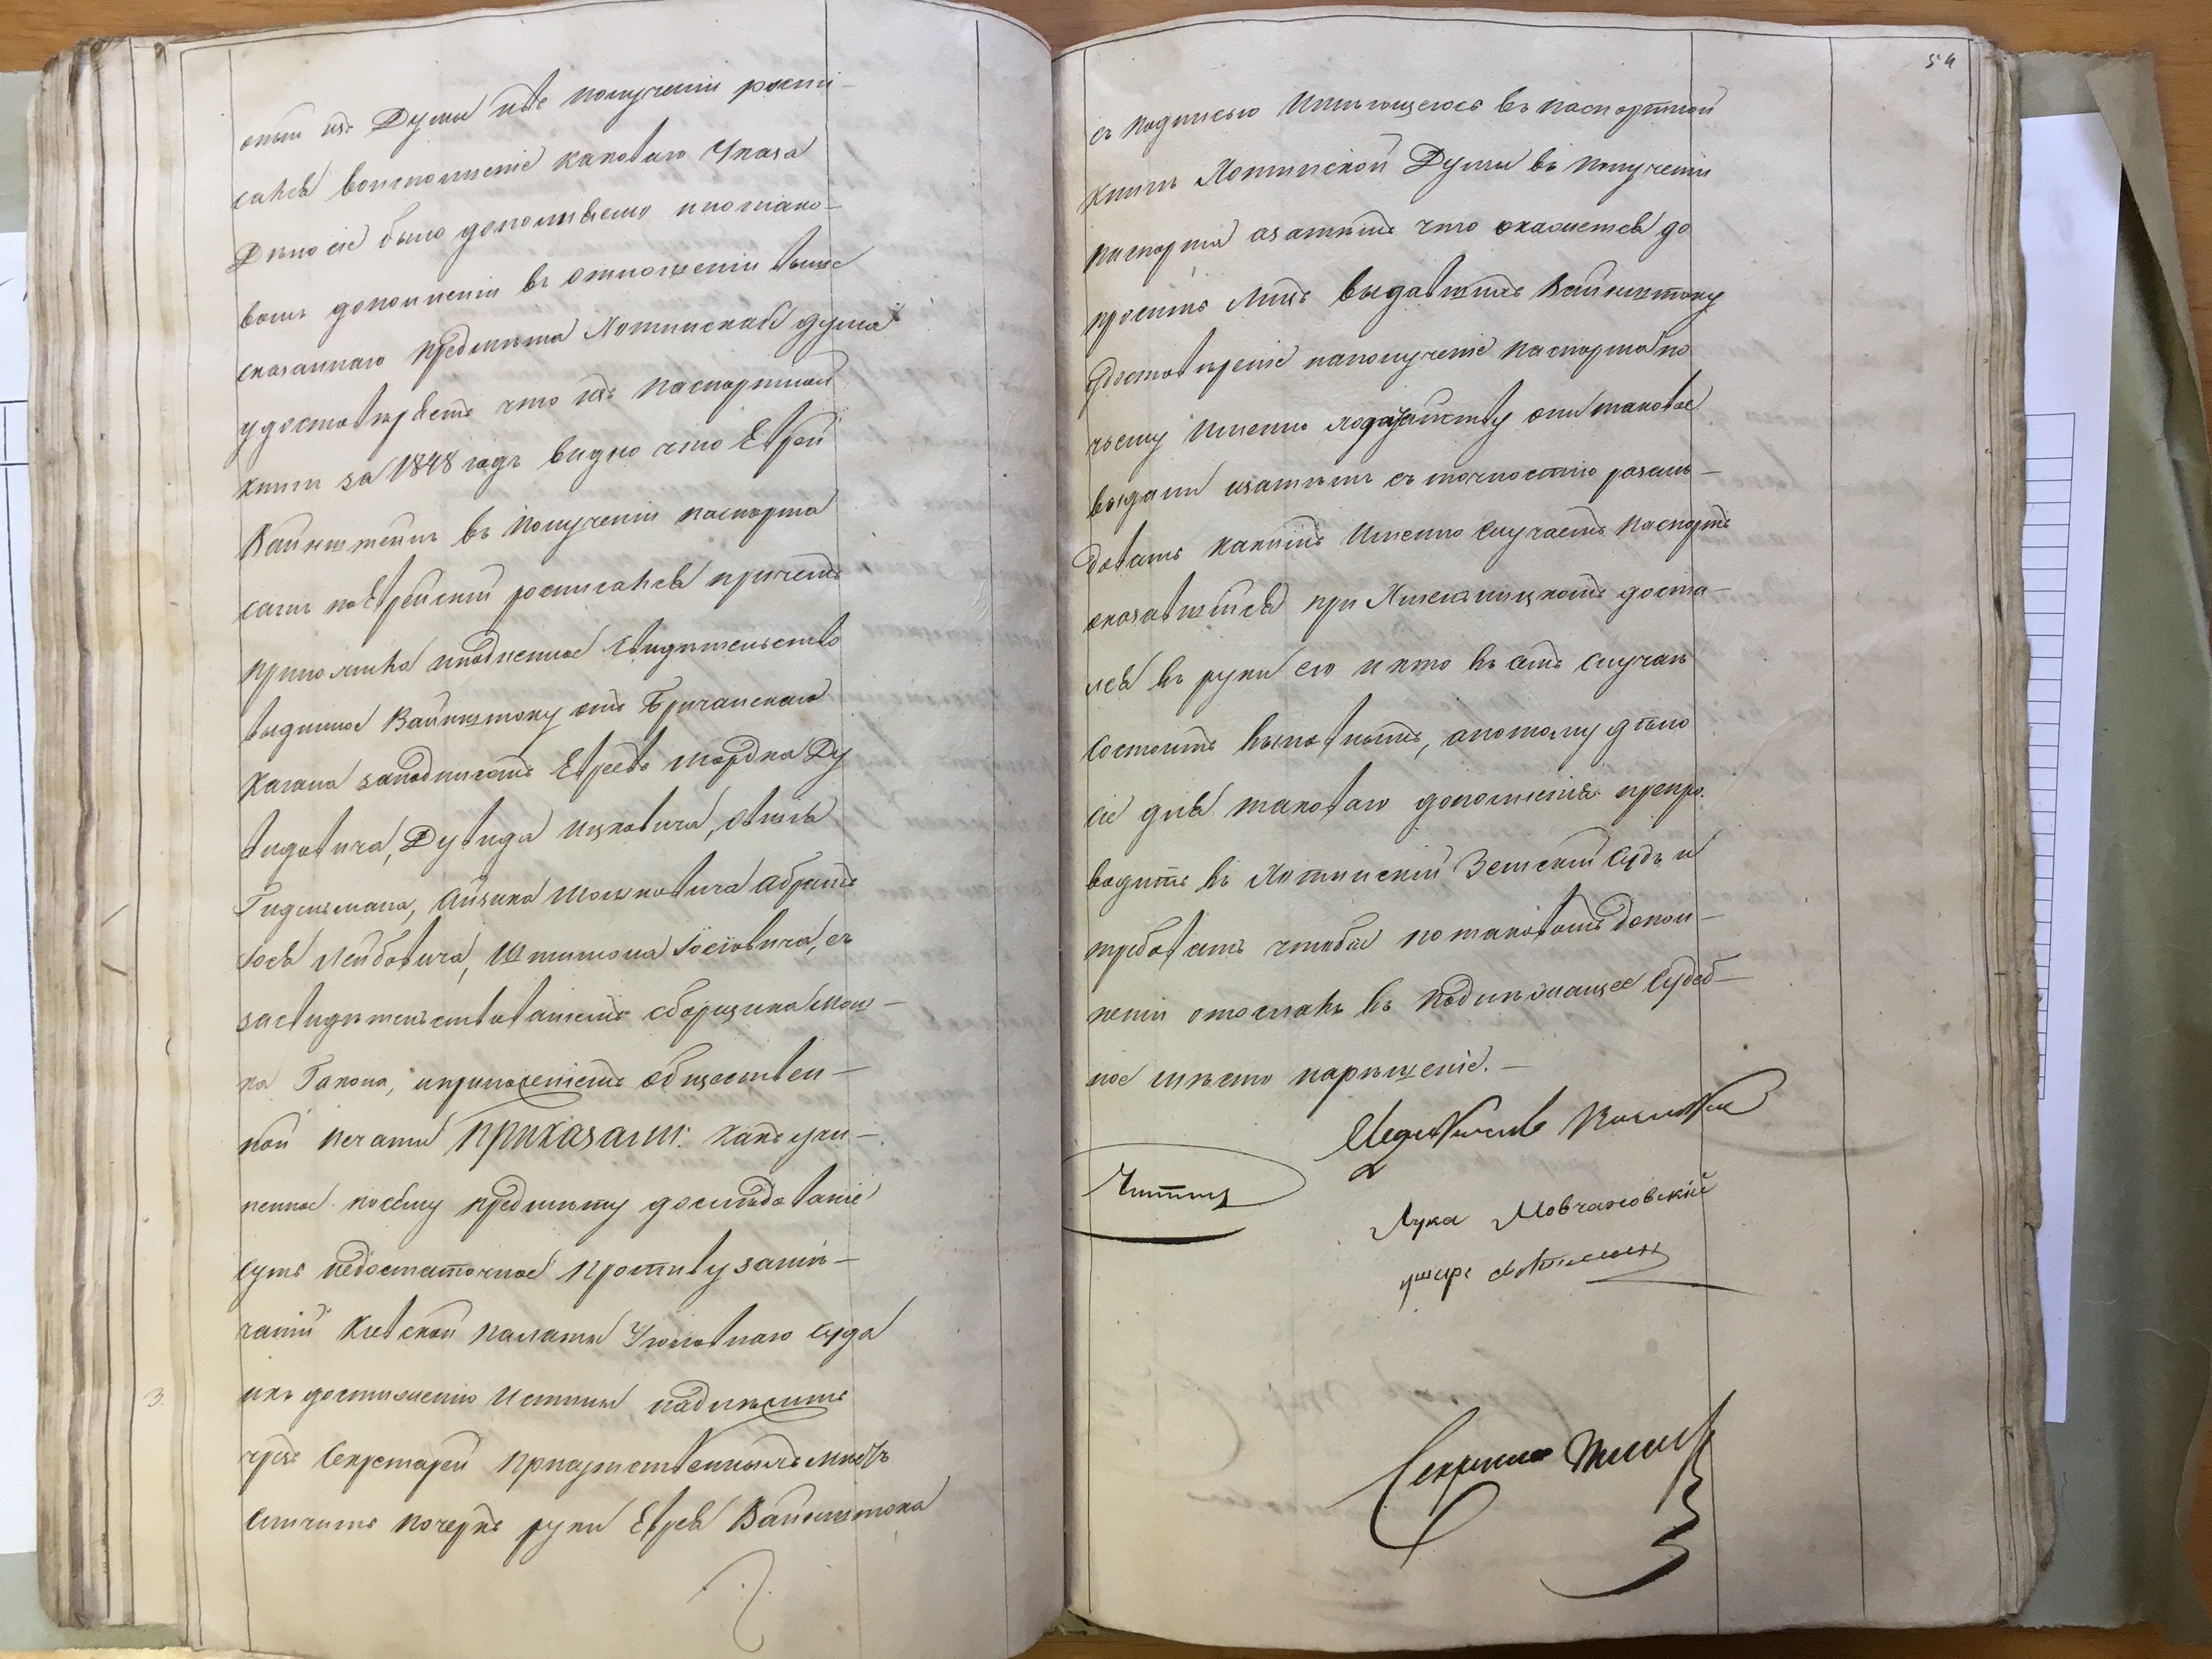 оный изъ Думы и въ полученіи роспи-
сался воисполненіе каковаго Указа
Дѣло сіе было дополняемо и по тако-
вомъ дополненіи въ отношеніи выше
сказаннаго предмѣта Хотинская дума
удостовѣряетъ что изъ паспортной
книги за 1848 годъ видно что Еврей
Вайнштейнъ въ полученіи паспорта
самъ по Еврейский росписался причемъ
приложила и подленное Свидѣтельство
выданное Вайнштоку отъ Бричанскаго
Кагала за подписомъ Евреевъ Мордка Ду
видовича, Дувида Ицковича,
Гидельмана, Айзика Мошковича Абрамъ
Іося Лейбовича, Шлимона Іосіовича, съ
засвидѣтельствованіемъ сборщика Мош-
ка Гакона, и приложеніемъ общественъ-
ной печати Приказали: Какъ учи-
ненное посему предмѣту дослѣдованіе
суть недостаточное противу замѣ-
чаній Кіевской палаты Уголовнаго Суда
и къ достиженію Истины надлежитъ
чрезъ Секретарей присутственныхъ мѣстъ
сличить почеркъ руки Еврея Вайнштока
54
съ подписью Имѣющеюся въ паспортной
книгѣ Хотинской Думы въ полученіи
паспорта а затѣмъ что окажется до
просить лицъ выдавшихъ Вайнштоку
удостовѣреніе на полученіе паспорта по
чьему Именно ходатайству они таковое
выдали и затѣмъ съ точностію розслѣ-
довать какимъ Именно случаемъ паспортъ
оказавшійся при Хмельницкомъ доста-
лся въ руки его и кто въ семъ случаѣ
состоитъ виновнымъ, а потому дѣло
сіе для таковаго дополненія препро-
водить въ Хотинскій Земскій Судъ и
требовать чтобы по таковомъ допол-
неніи отослалъ въ надлежащее Судеб-
ное мѣсто на рѣшеніе. –
Лука Мовчановскій
Секретарь
3